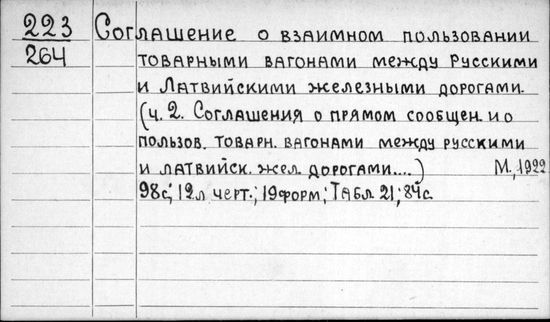 223 Соглашение о взаимном пользовании
264 товарными вагонами между Русскими
и Латвийскими железными дорогами.
(ч. 2. Соглашения о прямом сообщен. и о
пользов. товарн. вагонами между русскими
и латвийск. жел. дорогами....) М., 1922
98с; 12л черт.; 19форм; Табл. 21; 84с.